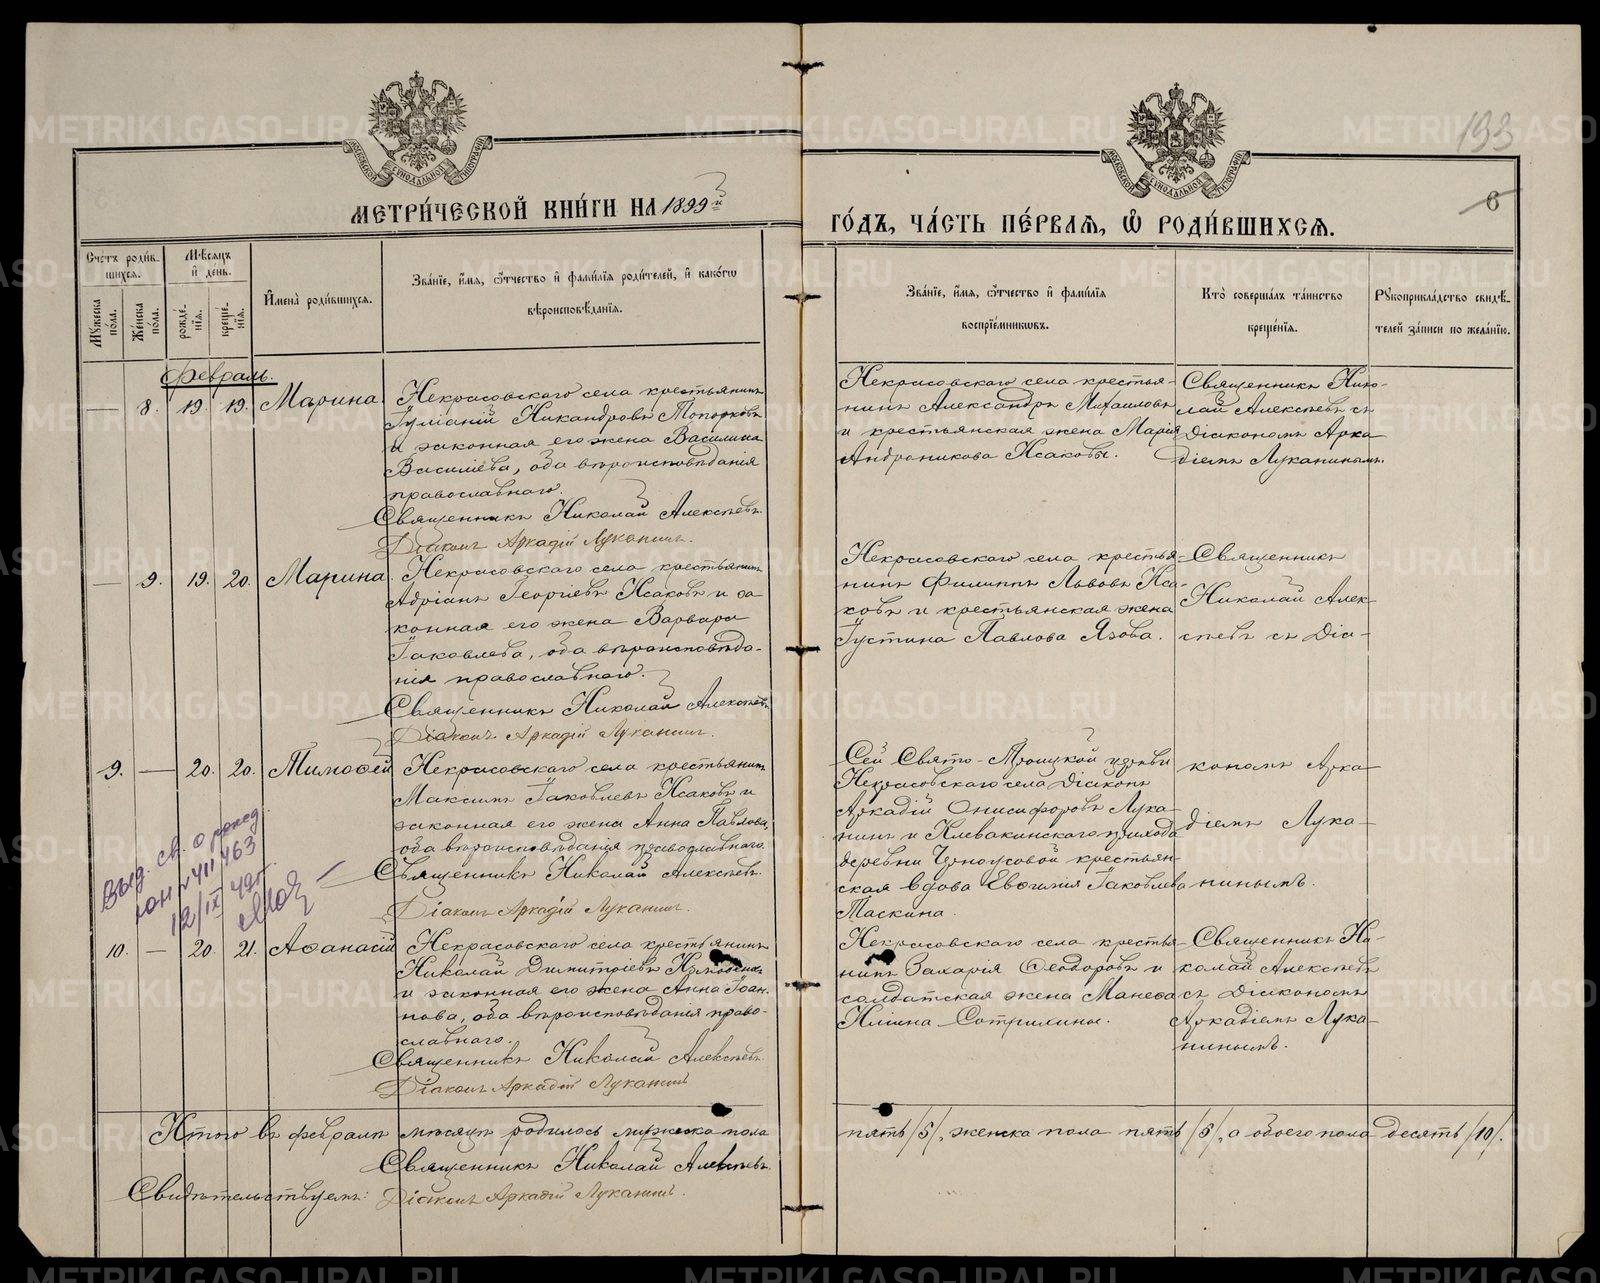 193
МЕТРИ́ЧЕСКОЙ КНИ́ГИ НА 1899й
ГО́ДЪ, ЧА́СТЬ ПЕ́РВАѦ, Ѡ҆ РОДИ́ВШИХСѦ.
6
Счетъ роди́в-
шихсѧ.
Мꙋжеска по́ла.
Же́нска по́ла.
Мѣ́сяцъ
и҆ де́нь.
рожде́нїѧ.
креще́нїѧ.
И҆мена̀ роди́вшихсѧ.
Зва́нїе, и҆́мѧ, ѻ҆́тчество и҆ фами́лїѧ роди́телей, и҆ како́гѡ
вѣроисповѣ́данїѧ.
Зва́нїе, и҆́мѧ, ѻ҆́тчество и҆ фами́лїѧ
воспрїе́мникѡвъ.
Кто̀ соверша́лъ та́инство
креще́нїѧ.
Рꙋкоприкла́дство свидѣ́-
телей за́писи по жела́нїю.
Февраль.
— 8. 19. 19. Марина
Некрасовскаго села крестьянинъ
Іуліаній Никандровъ Топорковъ
и законная его жена Василиса
Василіева, оба вѣроисповѣданія
православнаго.
Священникъ Николай Алексѣевъ.
Діаконъ Аркадій Луканинъ.
Некрасовскаго села крестья-
нинъ Александръ Михаиловъ
и крестьянская жена Марія
Андроникова Исаковы.
Священникъ Нико-
лай Алексѣевъ съ
Діакономъ Арка-
діемъ Луканинымъ.
— 9. 19. 20. Марина
Некрасовскаго села крестьянинъ
Адріанъ Георгіевъ Исаковъ и за-
конная его жена Варвара
Іаковлева, оба вѣроисповѣда-
нія православнаго.
Священникъ Николай Алексѣевъ.
Діаконъ Аркадій Луканинъ.
Некрасовскаго села крестья-
нинъ Филиппъ Львовъ Иса-
ковъ и крестьянская жена
Іустина Павлова Язова.
Священникъ
Николай Алек-
сѣевъ съ Діа-
9. — 20. 20. Тимоѳей
Некрасовскаго села крестьянинъ
Максимъ Іаковлевъ Исаковъ и
законная его жена Анна Павлова,
оба вѣроисповѣданія православнаго.
Священникъ Николай Алексѣевъ.
Діаконъ Аркадій Луканинъ.
Сей Свято-Троицкой церкви
Некрасовскаго села Діаконъ
Аркадій Онисифоровъ Лука-
нинъ и Клевакинскаго прихода
деревни Черноусовой крестьян-
ская вдова Евѳимія Іаковлева
Таскина.
кономъ Арка-
діемъ Лука-
нинымъ.
Выд. св. о рожд
ЮН № 411463
12/IX 49г.
10. — 20. 21. Аѳанасій
Некрасовскаго села крестьянинъ
Николай Димитріевъ
и законная его жена Анна Іоан-
нова, оба вѣроисповѣданія право-
славнаго.
Священникъ Николай Алексѣевъ.
Діаконъ Аркадій Луканинъ
Некрасовскаго села крестья-
нинъ Захарія Ѳеодоровъ и
солдатская жена Манефа
Иліина Сотрихины.
Священникъ Ни-
колай Алексѣевъ
съ Діакономъ
Аркадіемъ Лука-
нинымъ.
Итого въ февралѣ мѣсяцѣ родилось мужеска пола пять /5/, женска пола пять /5/, а обоего пола десять /10/.
Священникъ Николай Алексѣевъ.
Свидѣтельствуемъ: Діаконъ Аркадій Луканинъ.
METRIKI.GASO-URAL.RU